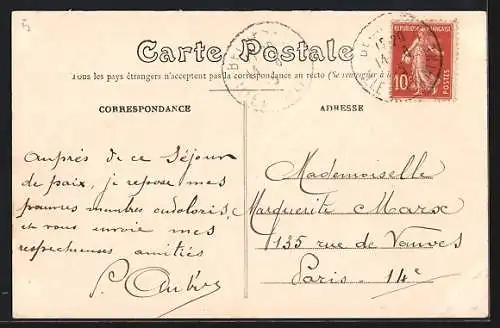 Carte Postale
Tous les pays étrangers n'acceptent pas la correspondance au recto (Se renseigner à la
CORRESPONDANCE
ADRESSE
RÉPUBLIQUE FRANÇAISE
10
POSTES
15
14
Auprès de ce séjour
de paix, je repose mes
pauvres membres endoloris,
et vous envoie mes
respectueuses amitiés
P. Aubry
Mademoiselle
Marguerite Marx
135 rue de Vanves
Paris - 14e